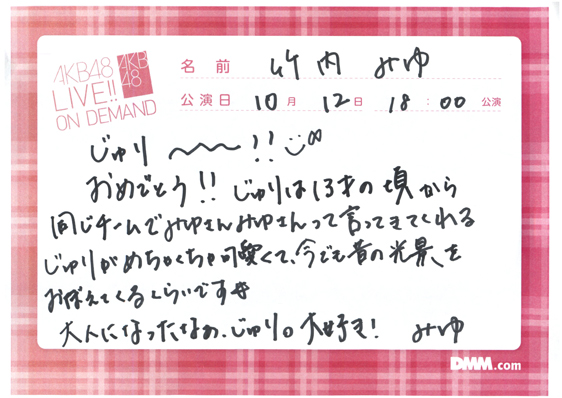 AKB48
LIVE!!
ON DEMAND
AKB
48
名前 竹内 みゆ
公演日 10月 12日 18:00公演
じゅり 〜〜!!
おめでとう!! じゅりは13才の頃から
同じチームでみゆさんみゆさんって言ってきてくれる
じゅりがめちゃくちゃ可愛くて、今でも昔の光景を
おぼえてるくらいです
大人になったなぁ、じゅり。大好き! みゆ
DMM.com